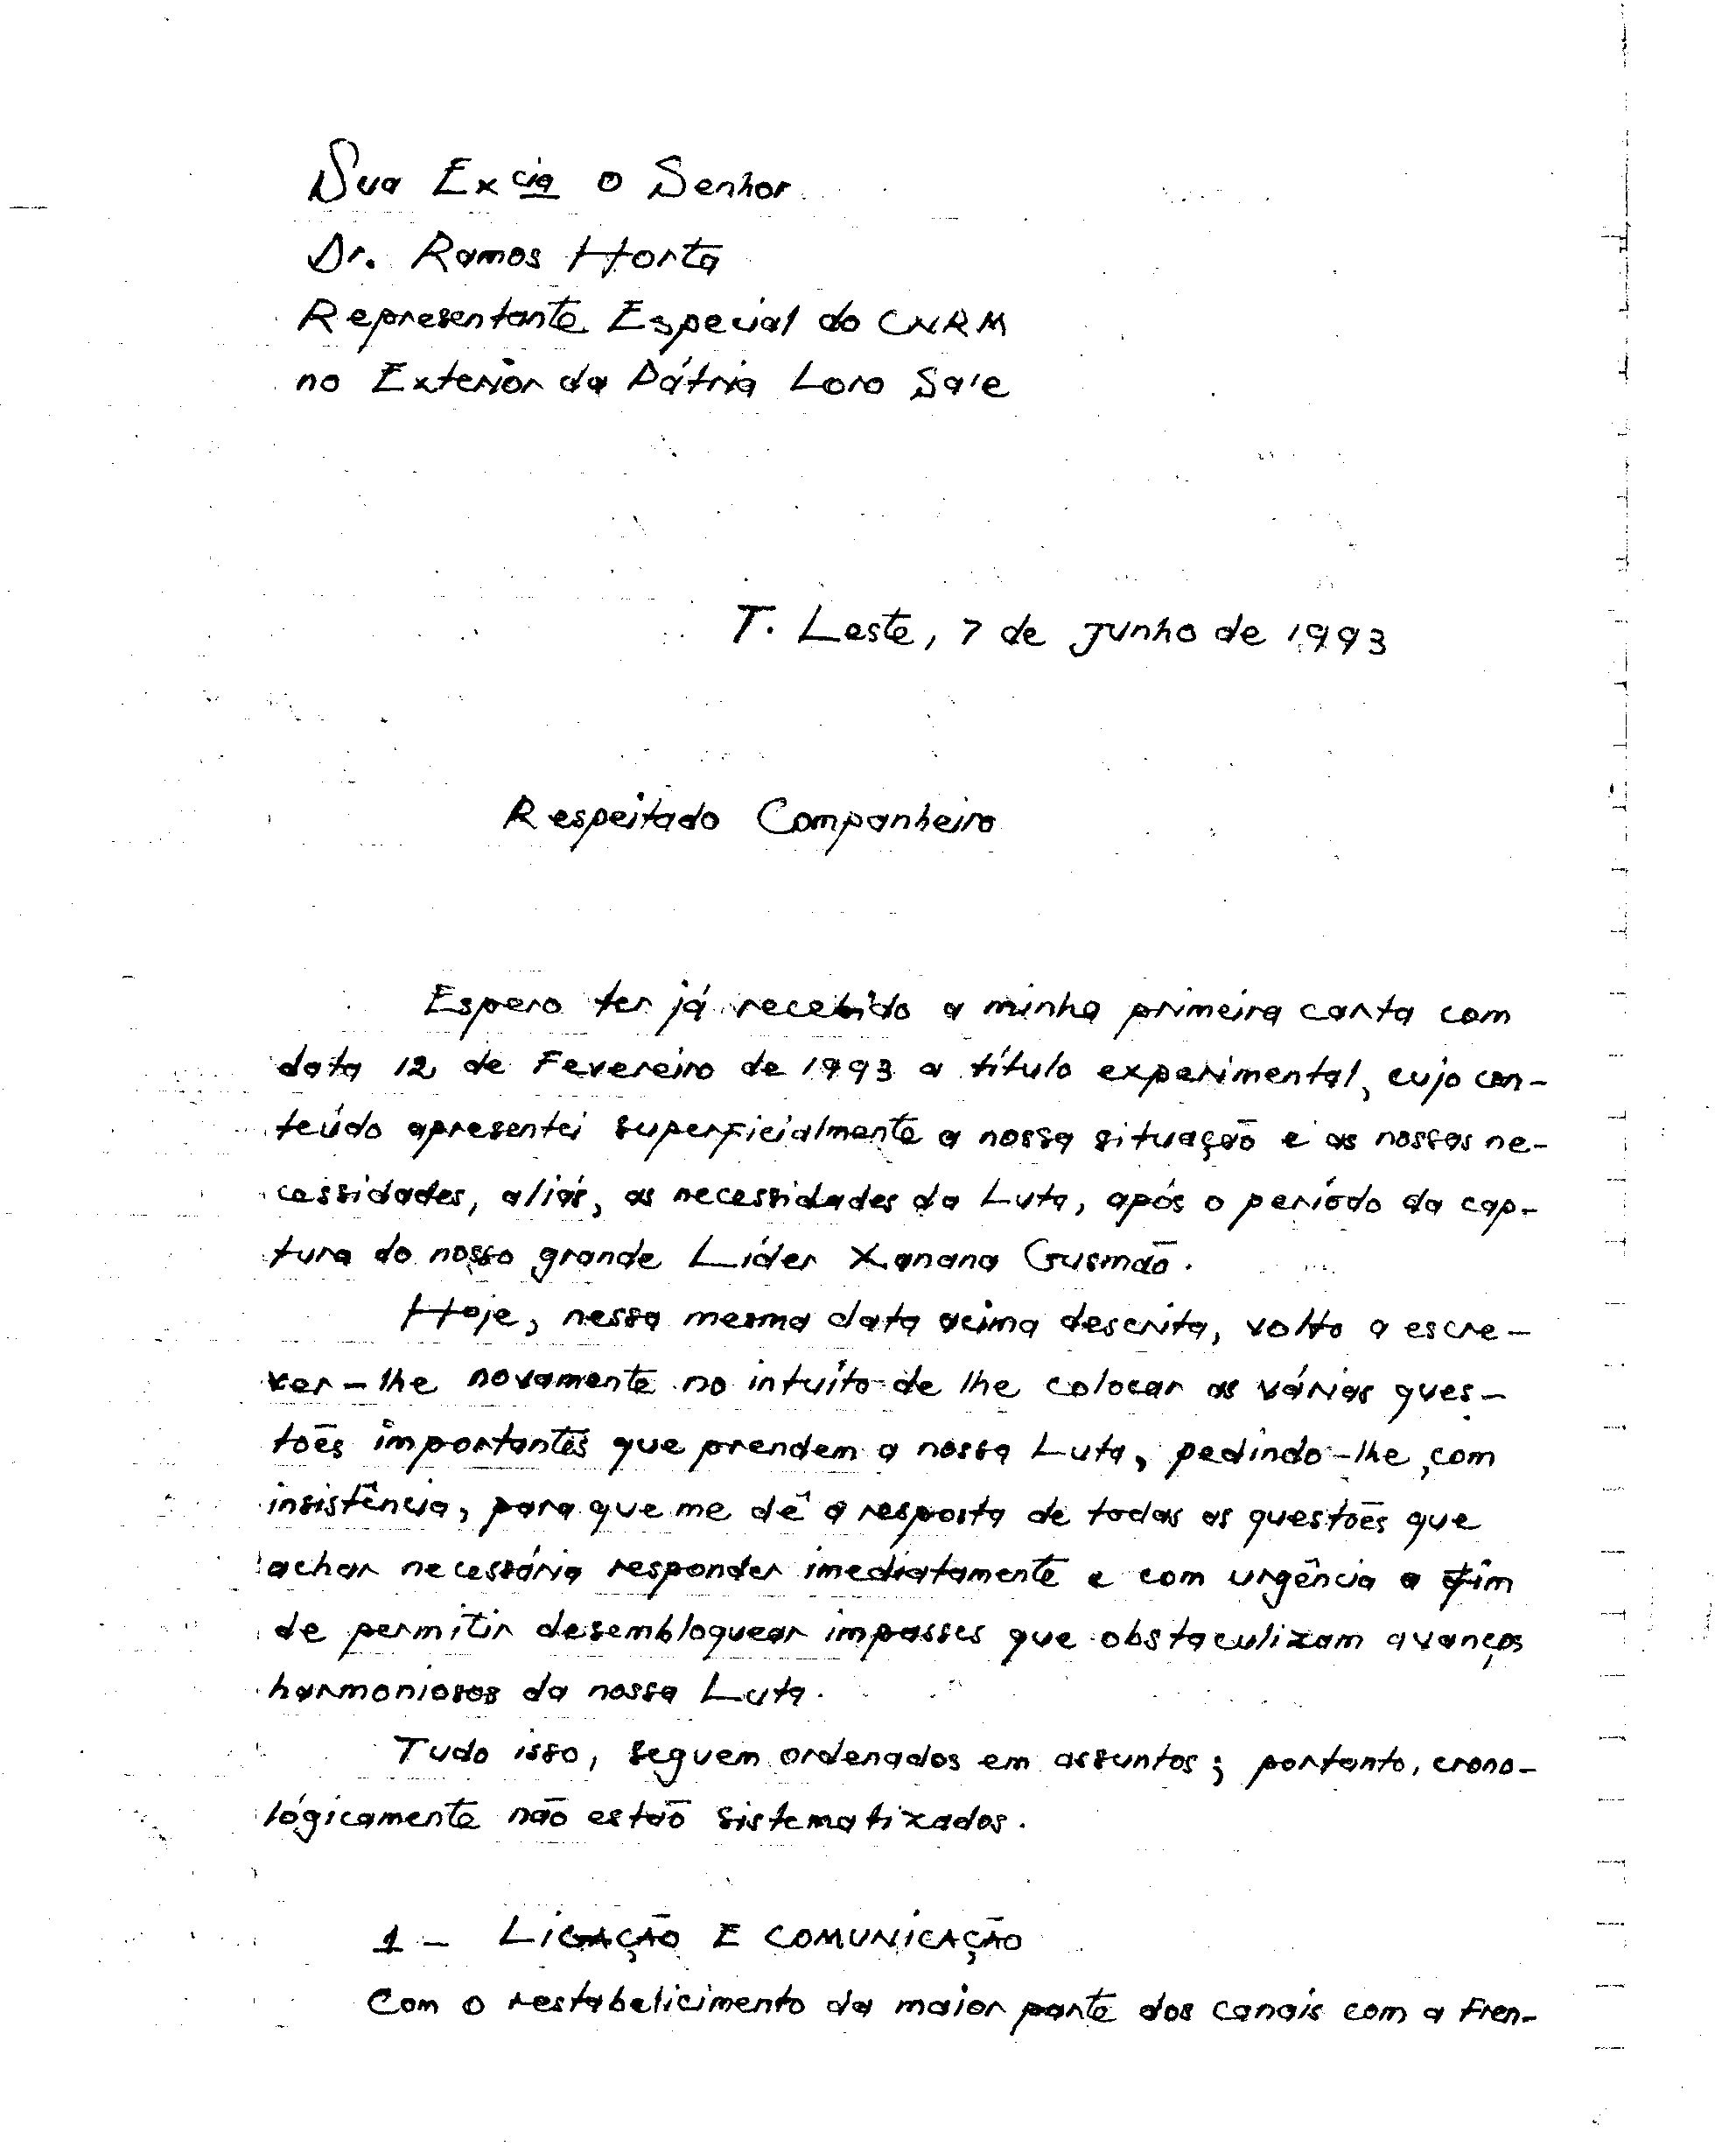 Sua Excia o Senhor
Dr. Ramos Horta
Representante Especial do CNRM
no Exterior da Pátria Loro Sa'e
T. Leste, 7 de Junho de 1993
Respeitado Companheiro
Espero ter já recebido a minha primeira carta com
data 12 de Fevereiro de 1993 a título experimental, cujo con-
teúdo apresentei superficialmente a nossa situação e as nossas ne-
cessidades, aliás, as necessidades da Luta, após o período da cap-
tura do nosso grande Líder Xanana Gusmão.
Hoje, nessa mesma data acima descrita, volto a escre-
ver-lhe novamente no intuito de lhe colocar as várias ques-
tões importantes que prendem a nossa Luta, pedindo-lhe, com
insistência, para que me dê a resposta de todas as questões que
achar necessária responder imediatamente e com urgência a fim
de permitir desembloquear impasses que obstaculizam avanços
harmoniosos da nossa Luta.
Tudo isso, seguem ordenados em assuntos; portanto, crono-
lógicamente não estão sistematizados.
1 - LIGAÇÃO E COMUNICAÇÃO
Com o restabelicimento da maior parte dos canais com a Fren-